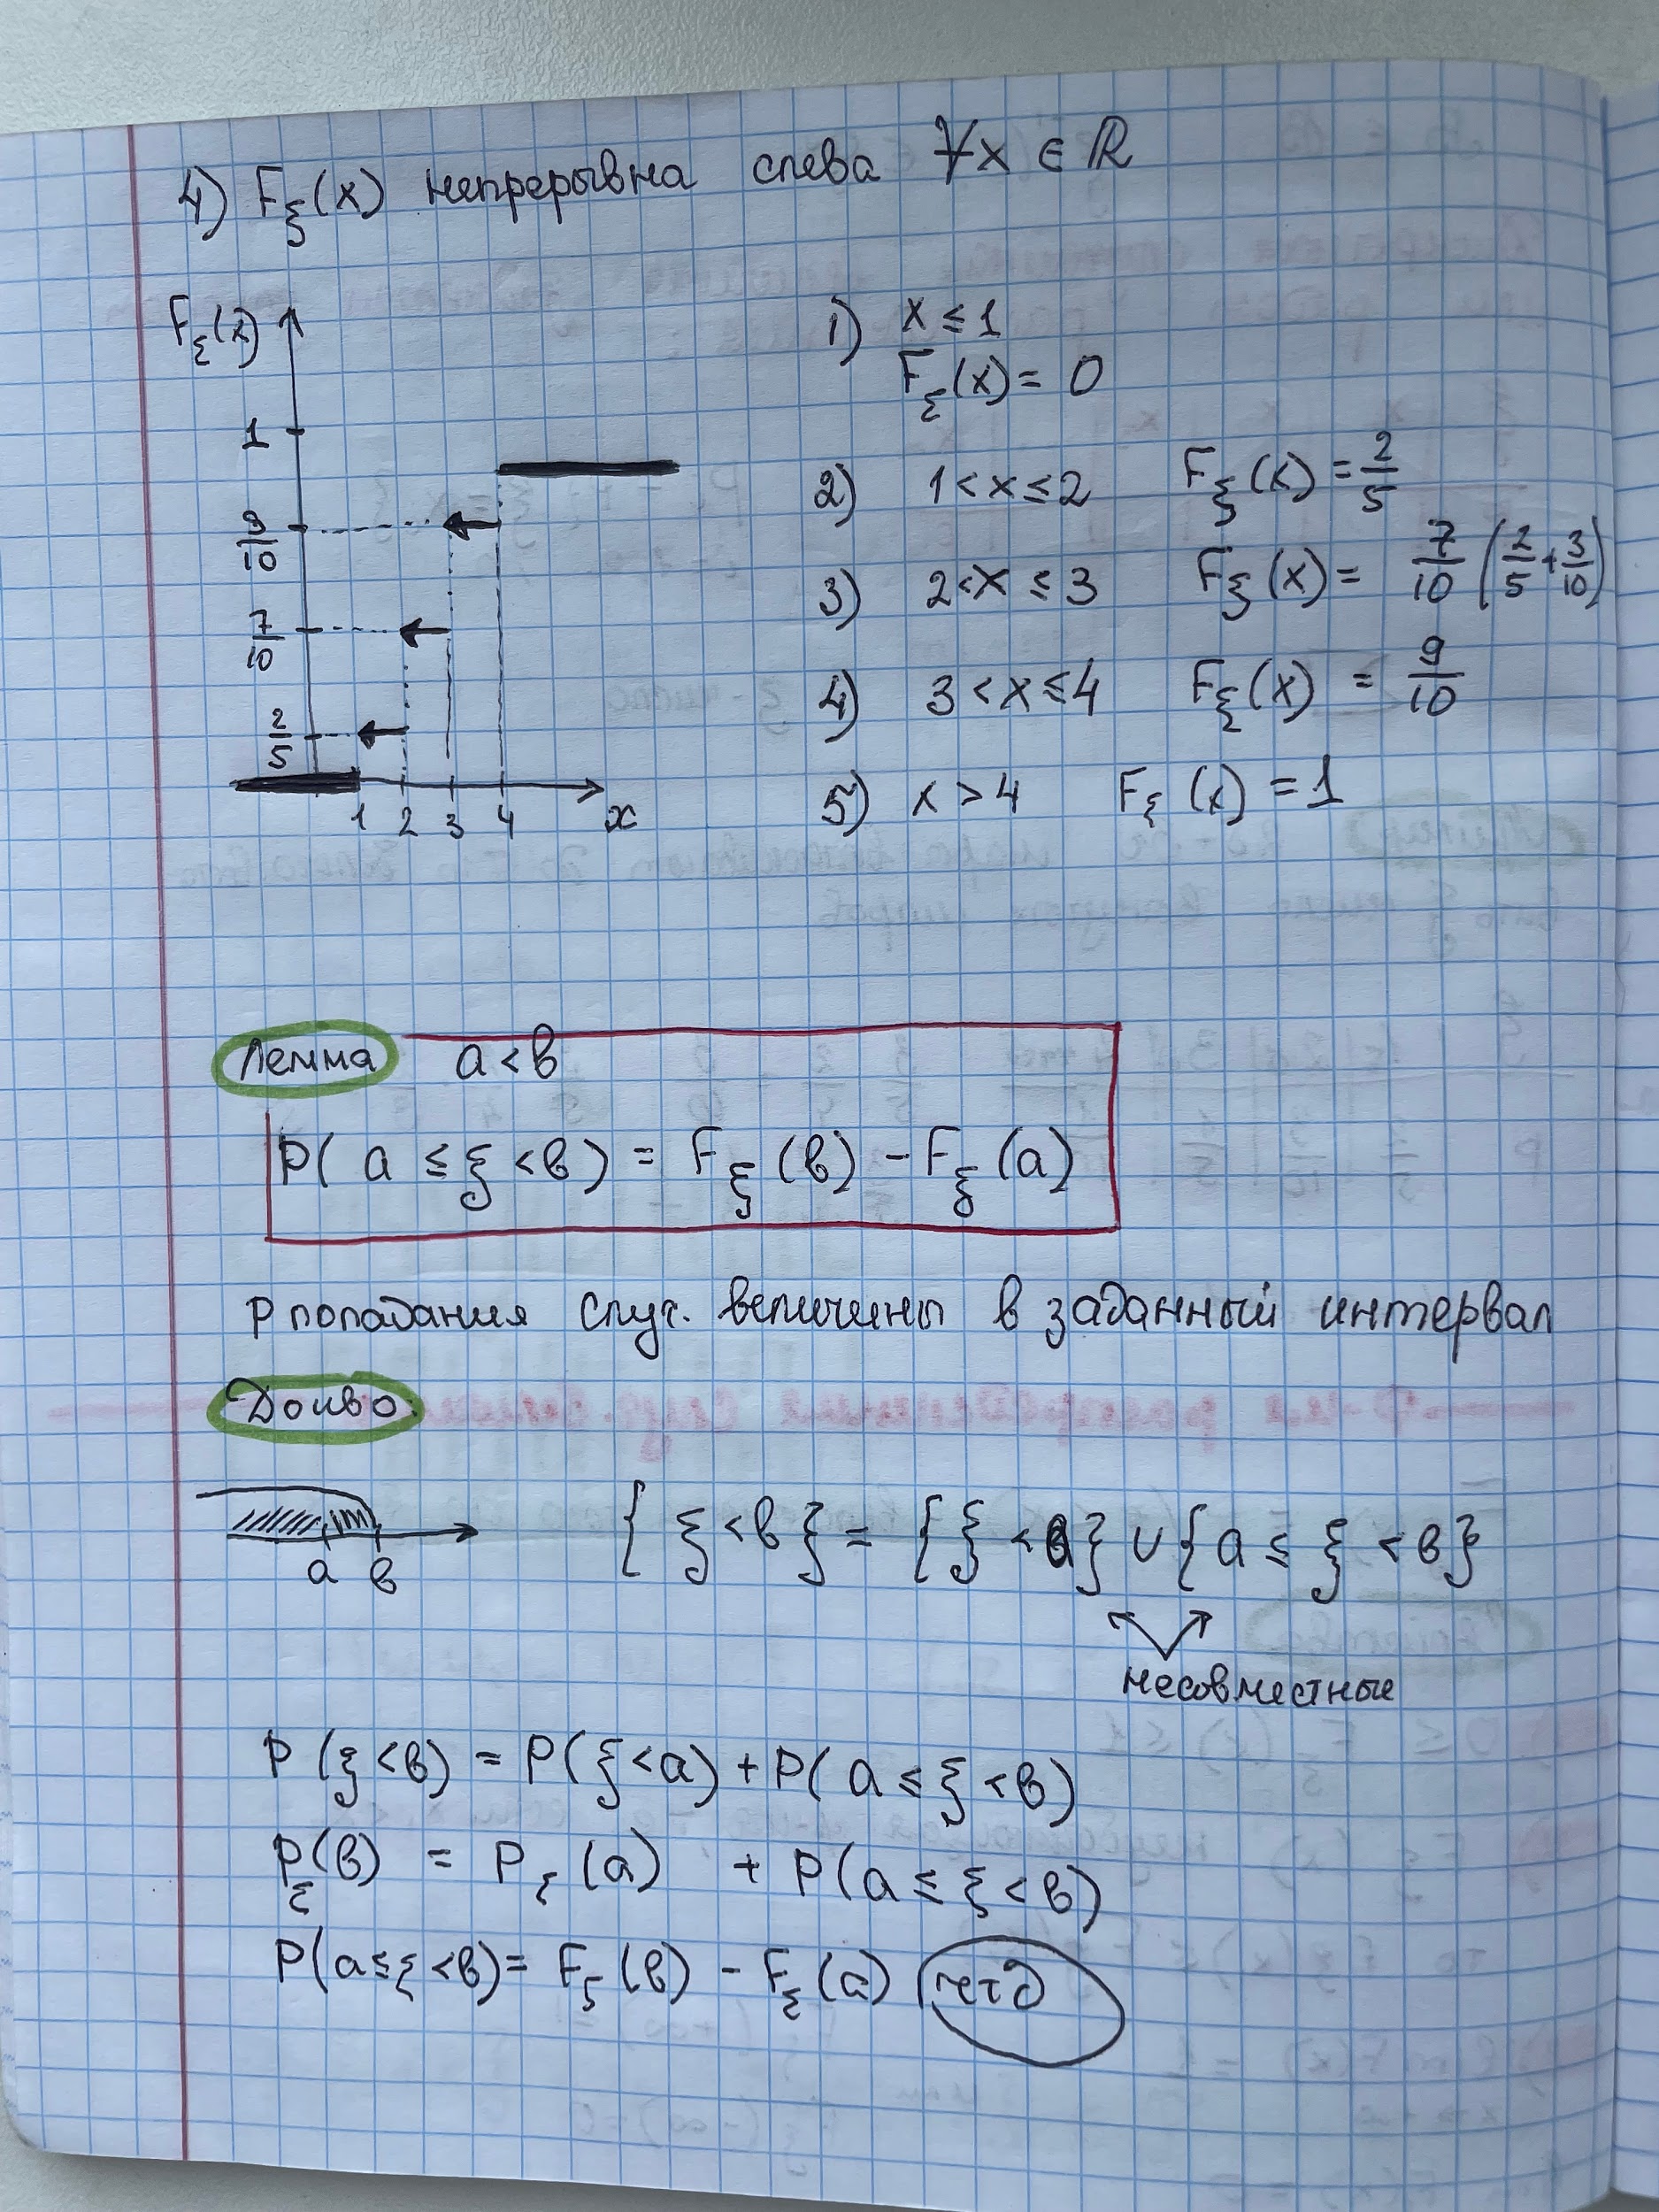 4) Fξ(x) непрерывна слева ∀x ∈ ℝ
Fξ(x)
1
9/10
7/10
2/5
1 2 3 4 x
1) x ≤ 1
Fξ(x) = 0
2) 1 < x ≤ 2 Fξ(x) = 2/5
3) 2 < x ≤ 3 Fξ(x) = 7/10 (2/5 + 3/10)
4) 3 < x ≤ 4 Fξ(x) = 9/10
5) x > 4 Fξ(x) = 1
Лемма a < в
P( a ≤ ξ < в ) = Fξ(в) - Fξ(a)
P попадания случ. величины в заданный интервал
Док-во:
a в
{ ξ < в } = { ξ < a } ∪ { a ≤ ξ < в }
несовместные
P (ξ < в) = P(ξ < a) + P( a ≤ ξ < в)
Pξ(в) = Pξ(a) + P(a ≤ ξ < в)
P(a ≤ ξ < в) = Fξ(в) - Fξ(a) чтд